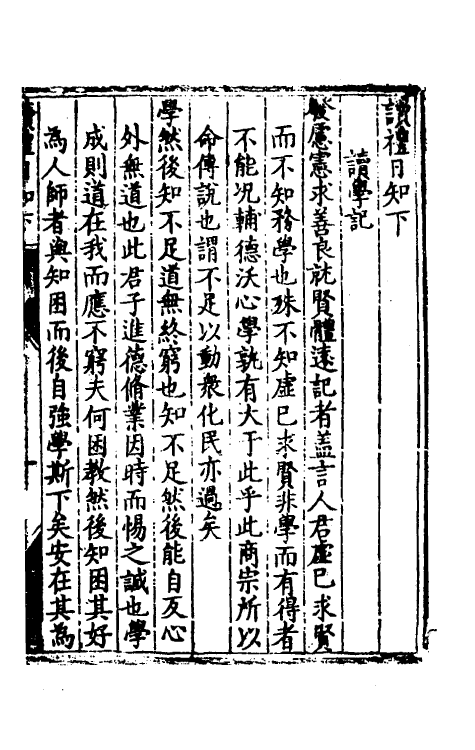 讀禮日知下
讀學記
發慮憲求善良就賢體遠記者盖言人君虛已求賢
而不知務學也殊不知虛已求賢非學而有得者
不能况輔德沃心學孰有大于此乎此商宗所以
命傳說也謂不足以動衆化民亦過矣
學然後知不足道無終窮也知不足然後能自反心
外無道也此君子進德脩業因時而惕之誠也學
成則道在我而應不窮夫何困教然後知困其好
為人師者與知困而後自強學斯下矣安在其為